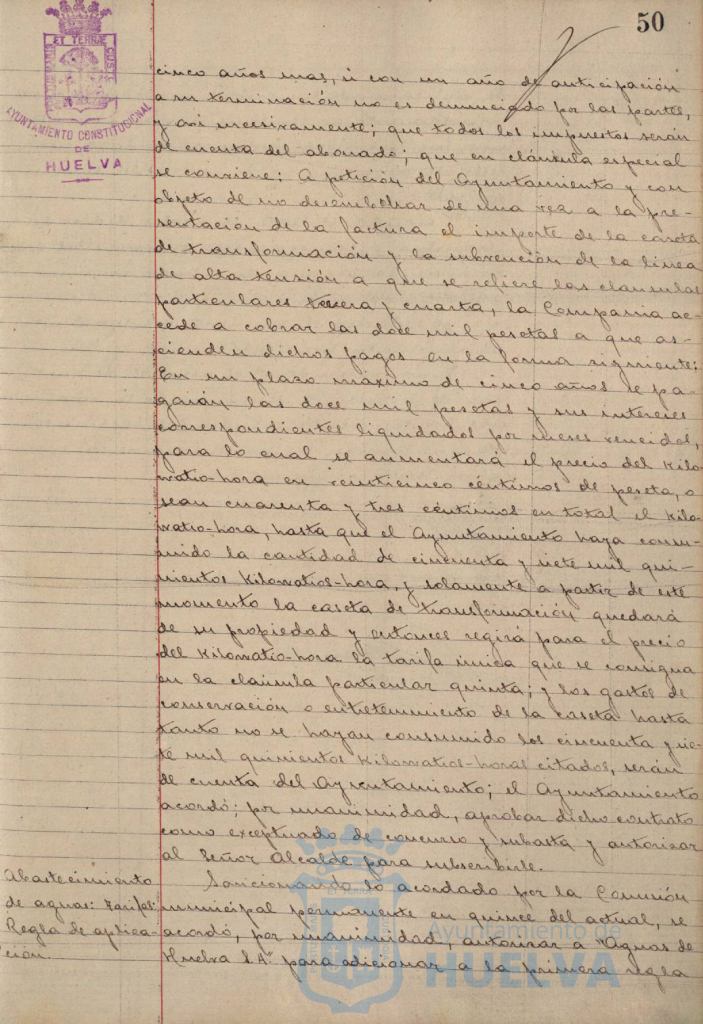 50
ET TERRÆ
CUST
AYUNTAMIENTO CONSTITUCIONAL
DE
HUELVA
cinco años mas, si con un año de anticipación
a su terminación no es denunciado por las partes,
y asi sucesivamente; que todos los impuestos serán
de cuenta del abonado; que en cláusula especial
se conviene: A petición del Ayuntamiento y con
objeto de no desembolsar de una vez a la pre-
sentación de la factura el importe de la caseta
de transformación y la subvención de la línea
de alta tensión a que se refiere las clausulas
particulares tercera y cuarta, la Compañia ac-
cede a cobrar las doce mil pesetas a que as-
cienden dichos pagos en la forma siguiente:
En un plazo máximo de cinco años se pa-
garán las doce mil pesetas y sus intereses
correspondientes liquidados por meses vencidos,
para lo cual se aumentará el precio del Kilo-
watio-hora en veinticinco céntimos de peseta, o
sean cuarenta y tres céntimos en total el Kilo-
watio-hora, hasta que el Ayuntamiento haya consu-
mido la cantidad de cincuenta y siete mil qui-
nientos Kilowatios-hora, y solamente a partir de este
momento la caseta de transformación quedará
de su propiedad y entonces regirá para el precio
del Kilowatio-hora la tarifa única que se consigna
en la claúsula particular quinta; y los gastos de
conservación o entretenimiento de la caseta hasta
tanto no se hayan consumido los cincuenta y sie-
te mil quinientos Kilowatios-horas citados, serán
de cuenta del Ayuntamiento; el Ayuntamiento
acordó; por unanimidad, aprobar dicho contrato
como exceptuado de concurso y subasta y autorizar
al Señor Alcalde para subscribirle.
Abastecimiento
de aguas: Tarifas:
Regla de aplica-
ción.
Sancionando lo acordado por la Comisión
municipal permanente en quince del actual, se
acordó, por unanimidad, autorizar a "Aguas de
Huelva S.A." para adicionar a la primera regla
Ayuntamiento de
HUELVA